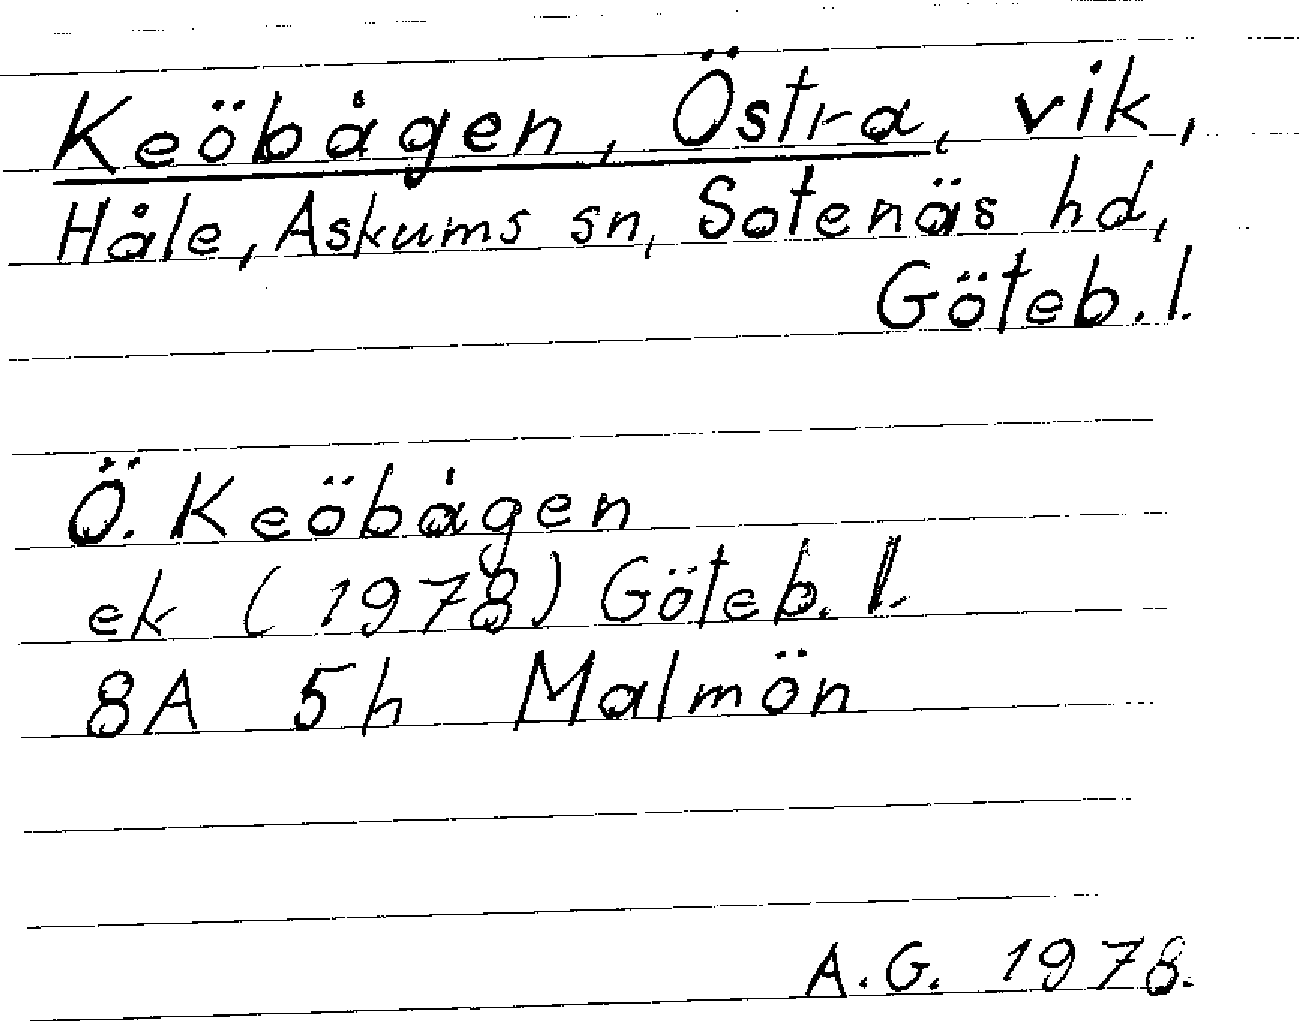 Keöbågen, Östra, vik,
Håle, Askums sn, Sotenäs hd,
Göteb. l.
Ö. Keöbågen
ek (1978) Göteb. l.
8A 5h Malmön
A.G. 1978.